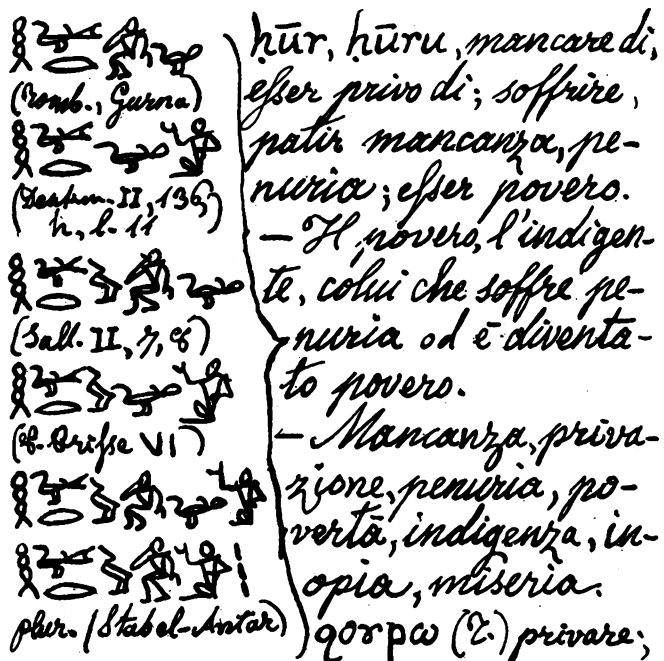 (Tomb., Gurna)
(Denkm. II, 136,
h, l. 11)
(Sall. II, 7, 8)
(P. Prisse VI)
plur. (Stabel-Antar)
ḥūr, ḥūru, mancare di,
esser privo di; soffrire,
patir mancanza, pe-
nuria; esser povero.
— Il povero, l'indigen-
te, colui che soffre pe-
nuria od è diventa-
to povero.
— Mancanza, priva-
zione, penuria, po-
vertà, indigenza, in-
opia, miseria.
ϭορρω (T.) privare;